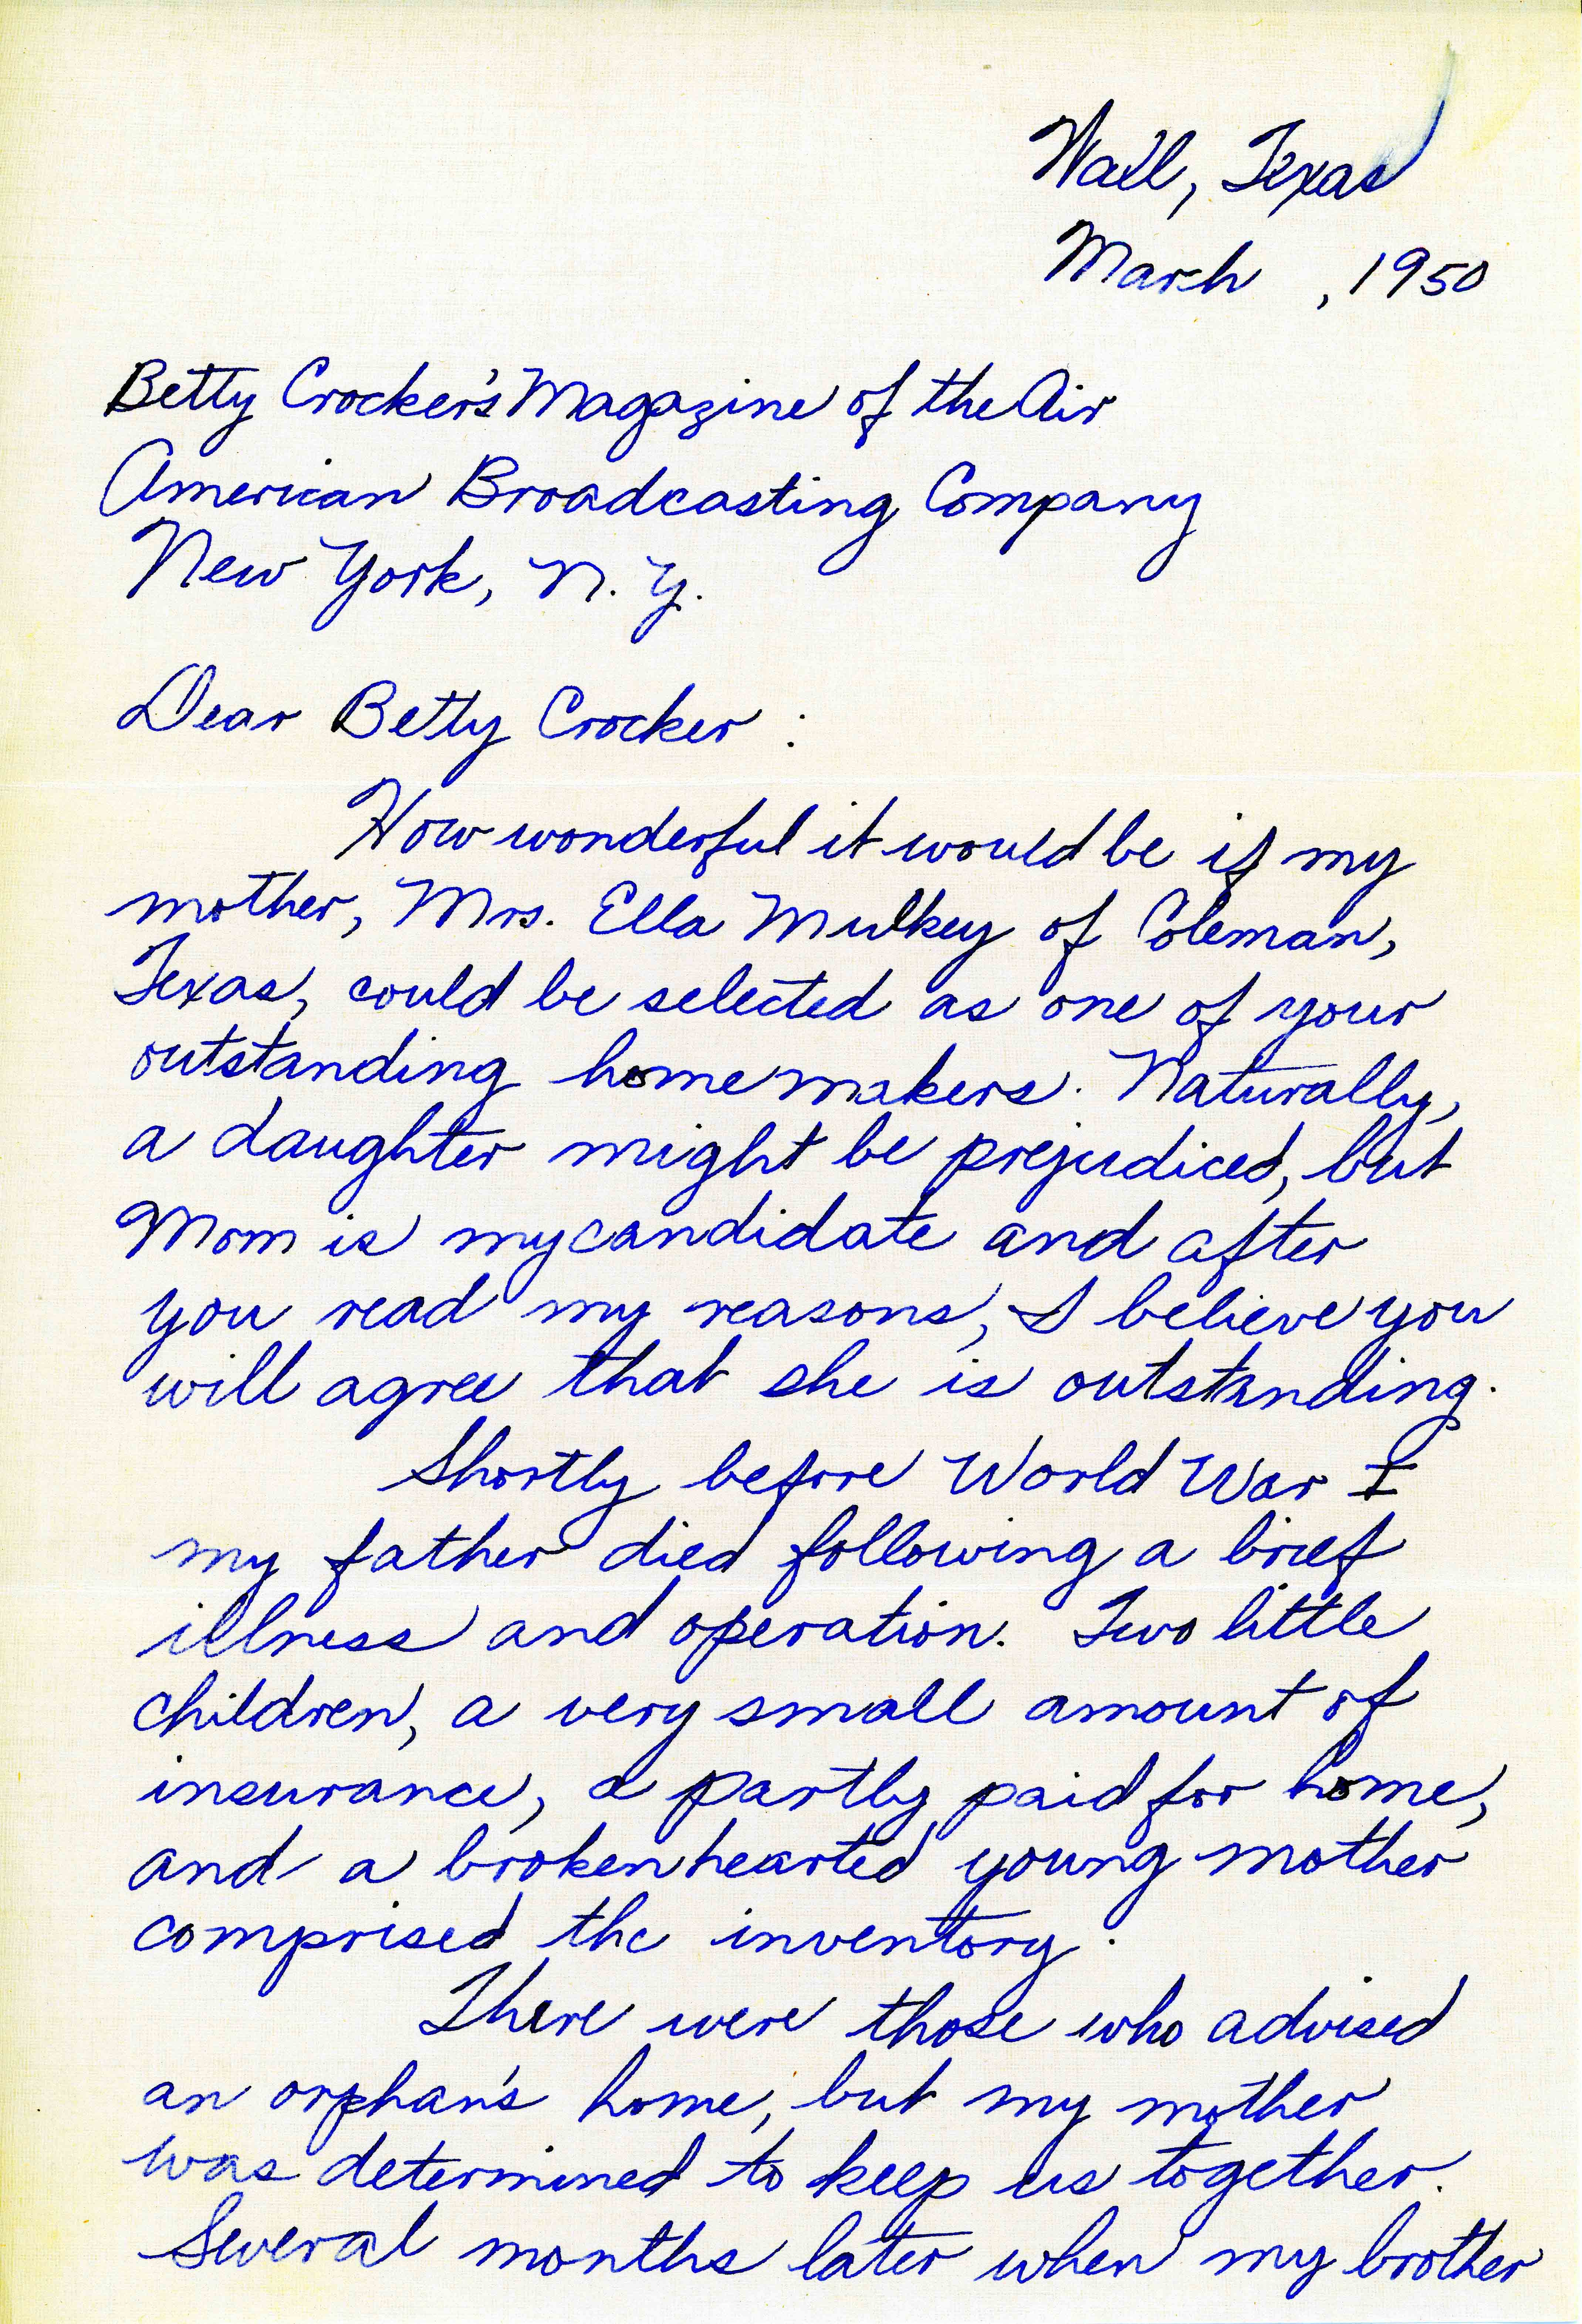 Wall, Texas
March , 1950
Betty Crocker's Magazine of the Air
American Broadcasting Company
New York, N. Y.
Dear Betty Crocker :
How wonderful it would be if my
mother, Mrs. Ella Mulkey of Coleman,
Texas, could be selected as one of your
outstanding homemakers. Naturally,
a daughter might be prejudiced, but
Mom is my candidate and after
you read my reasons, I believe you
will agree that she is outstanding.
Shortly before World War I
my father died following a brief
illness and operation. Two little
children, a very small amount of
insurance, a partly paid for home,
and a brokenhearted young mother
comprised the inventory.
There were those who advised
an orphan's home, but my mother
was determined to keep us together.
Several months later when my brother